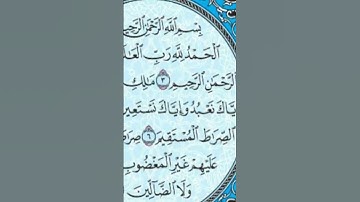 بِسْمِ ٱللَّهِ ٱلرَّحْمَٰنِ ٱلرَّحِيمِ
ٱلْحَمْدُ لِلَّهِ رَبِّ ٱلْعَا
ٱلرَّحْمَٰنِ ٱلرَّحِيمِ ٣ مَالِكِ
إِيَّاكَ نَعْبُدُ وَإِيَّاكَ نَسْتَعِينُ
ٱلصِّرَاطَ ٱلْمُسْتَقِيمَ ٦ صِرَاطَ
عَلَيْهِمْ غَيْرِ ٱلْمَغْضُوبِ
وَلَا ٱلضَّآلِّينَ